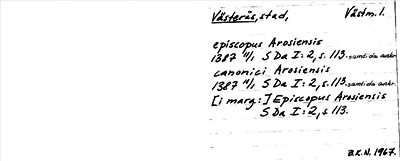 Västerås, stad, Västm. l.
episcopus Arosiensis
1387 11/1 S Da I: 2, s. 113. samtida avskr.
canonici Arosiensis
1387 11/1 S Da I: 2, s. 113. samtida avskr.
[i marg.:] Episcopus Arosiensis
S Da I: 2, s. 113.
B.K.N. 1967.